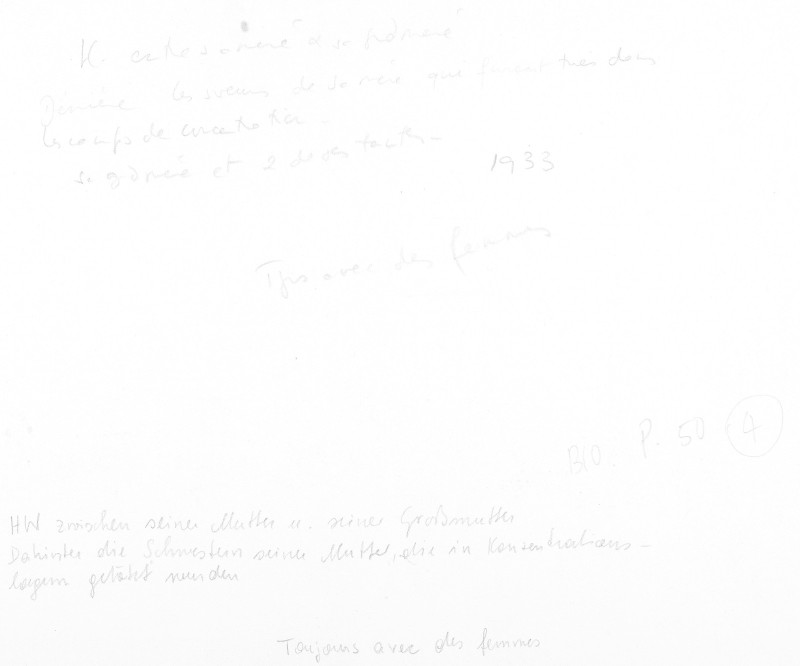 H. entre sa mère & sa gd mère
Derrière les sœurs de sa mère qui furent tuées dans
les camps de concentration -
sa gd mère et 2 de ses tantes -
1933
Tjrs avec des femmes
BIO. P. 50 4
HW zwischen seiner Mutter u. seiner Großmutter
Dahinter die Schwestern seiner Mutter, die in Konzentrations-
lagern getötet wurden
Toujours avec des femmes